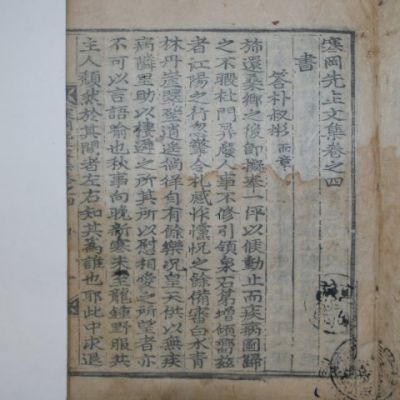 寒岡先生文集卷之四
書
答朴叔彬 兩章
旆還桑鄉之後即擬奉一伻以候動止而疾病圖歸
之不暇杜門屏廢人事不修引領泉石第增傾嚮玆
者江陽之行忽辱合札感怍慰怳之餘備審白水青
林丹崖翠壁逍遙徜徉自有餘樂況皇天供以無疾
病隣里助以棲遲之所其所以慰相愛之所望者亦
不可以言語喩也秋事向晚新寒未至龍鍾野服共
主人頹然於其間者左右知其為誰也耶此中求退